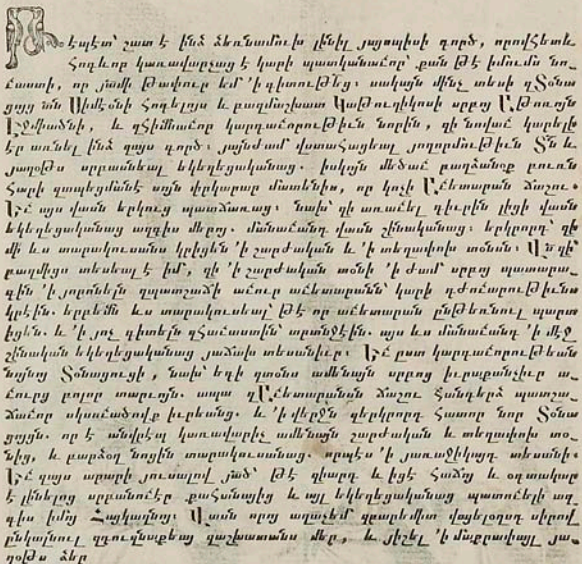 Թէպէտ՝ շատ է ինձ ձեռնամուխ լինիլ յայսպիսի գործ, որովհետև
Հոգևոր կառավարչաց է կարի պատկանաւոր՝ քան թէ իմումս նո-
ւաստի, որ յամի թափուր եմ ՚ի գիտութեց։ սակայն մինչ տեսի զՏօնա
ցոյց տն Սիմէօնի Հոգելոյս և բազմաշխատ Կաթուղիկոսի սրբոյ Աթոռոյն
Էջմիածնի, և զՀիանաւոր կարգաւորութիւն նորին, զի նովաւ կարելի
էր առնել ինձ զայս գործ։ յայնժամ վստահացեալ յողորմութիւն Տն և
յաղօթս սրբասնեալ եկեղեցականաց. իսկոյն մեծաւ բաղձանօք բուռն
Հարի զապեցմանէ այն փրկարար մատենիս, որ կոչի Աւետարան Ճաշու։
Եւ այս վասն երկուց պատճառաց։ նախ՝ զի առաւել դիւրին լիցի վասն
եկեղեցականաց ազգիս մերոյ. մանաւանդ վասն շինականաց։ երկրորդ՝ զի
մի ևս տարակուսանս կրիցեն ՚ի շարժական և ՚ի տեղափոխ տօնսն։ Վն զի՝
բազմիցս տեսեալ է իմ, զի ՚ի շարժական տօնի ՚ի ժամ սրբոյ պատարա-
գին ՚ի յորոնելն զպատշաճի աւուր աւետարանն՝ կարի դժուարութիւնս
կրէին. երբեմն ևս տարակուսեալ՝ թէ որ աւետարան ընթեռնուլ պարտ
իցեն. և ՚ի յոչ գիտելն զՀաւաստին՝ արտնջէին. այս ևս մանաւանդ ՚ի մէջ
շինական եկեղեցականաց յաճախ տեսանիւր։ Եւ ըստ կարգաւորութեան
նոյնոյ Տօնացուցի, նախ՝ եդի զտօնս ամենայն սրբոց իւրաքանչիւր ա-
ւուրց բոլոր տարւոյն. ապա զԱւետարանսն Ճաշու Հանդերձ պատշա-
ճաւոր սկսուածովք իւրեանց. և ՚ի վերջն զերկրորդ Հատոր նոր Տօնա
ցուցն. որ է անվրէպ կառավարիչ ամենայն շարժական և տեղափոխ տօ-
նից, և բարձօղ նոցին տարակուսանաց. որպէս ՚ի յառաջիկայդ տեսանի։
Եւ զայս արարի յուսալով յած՝ թէ գիարդ և իցէ Հաճոյ և օգտակար
է լինելոց սրբասուէր քահանայից և այլ եկեղեցականաց պատուելի ազ-
գիս իմոյ Հայկազնոյ։ Վասն որոյ աղաչեմ զբարեմիտ վայելօղսդ սիրով
ընկալնուլ զդուզնաքեայ զաշխատանս մեր, և յիշել ՚ի մաքրափայլ յա-
ղօթս ձեր